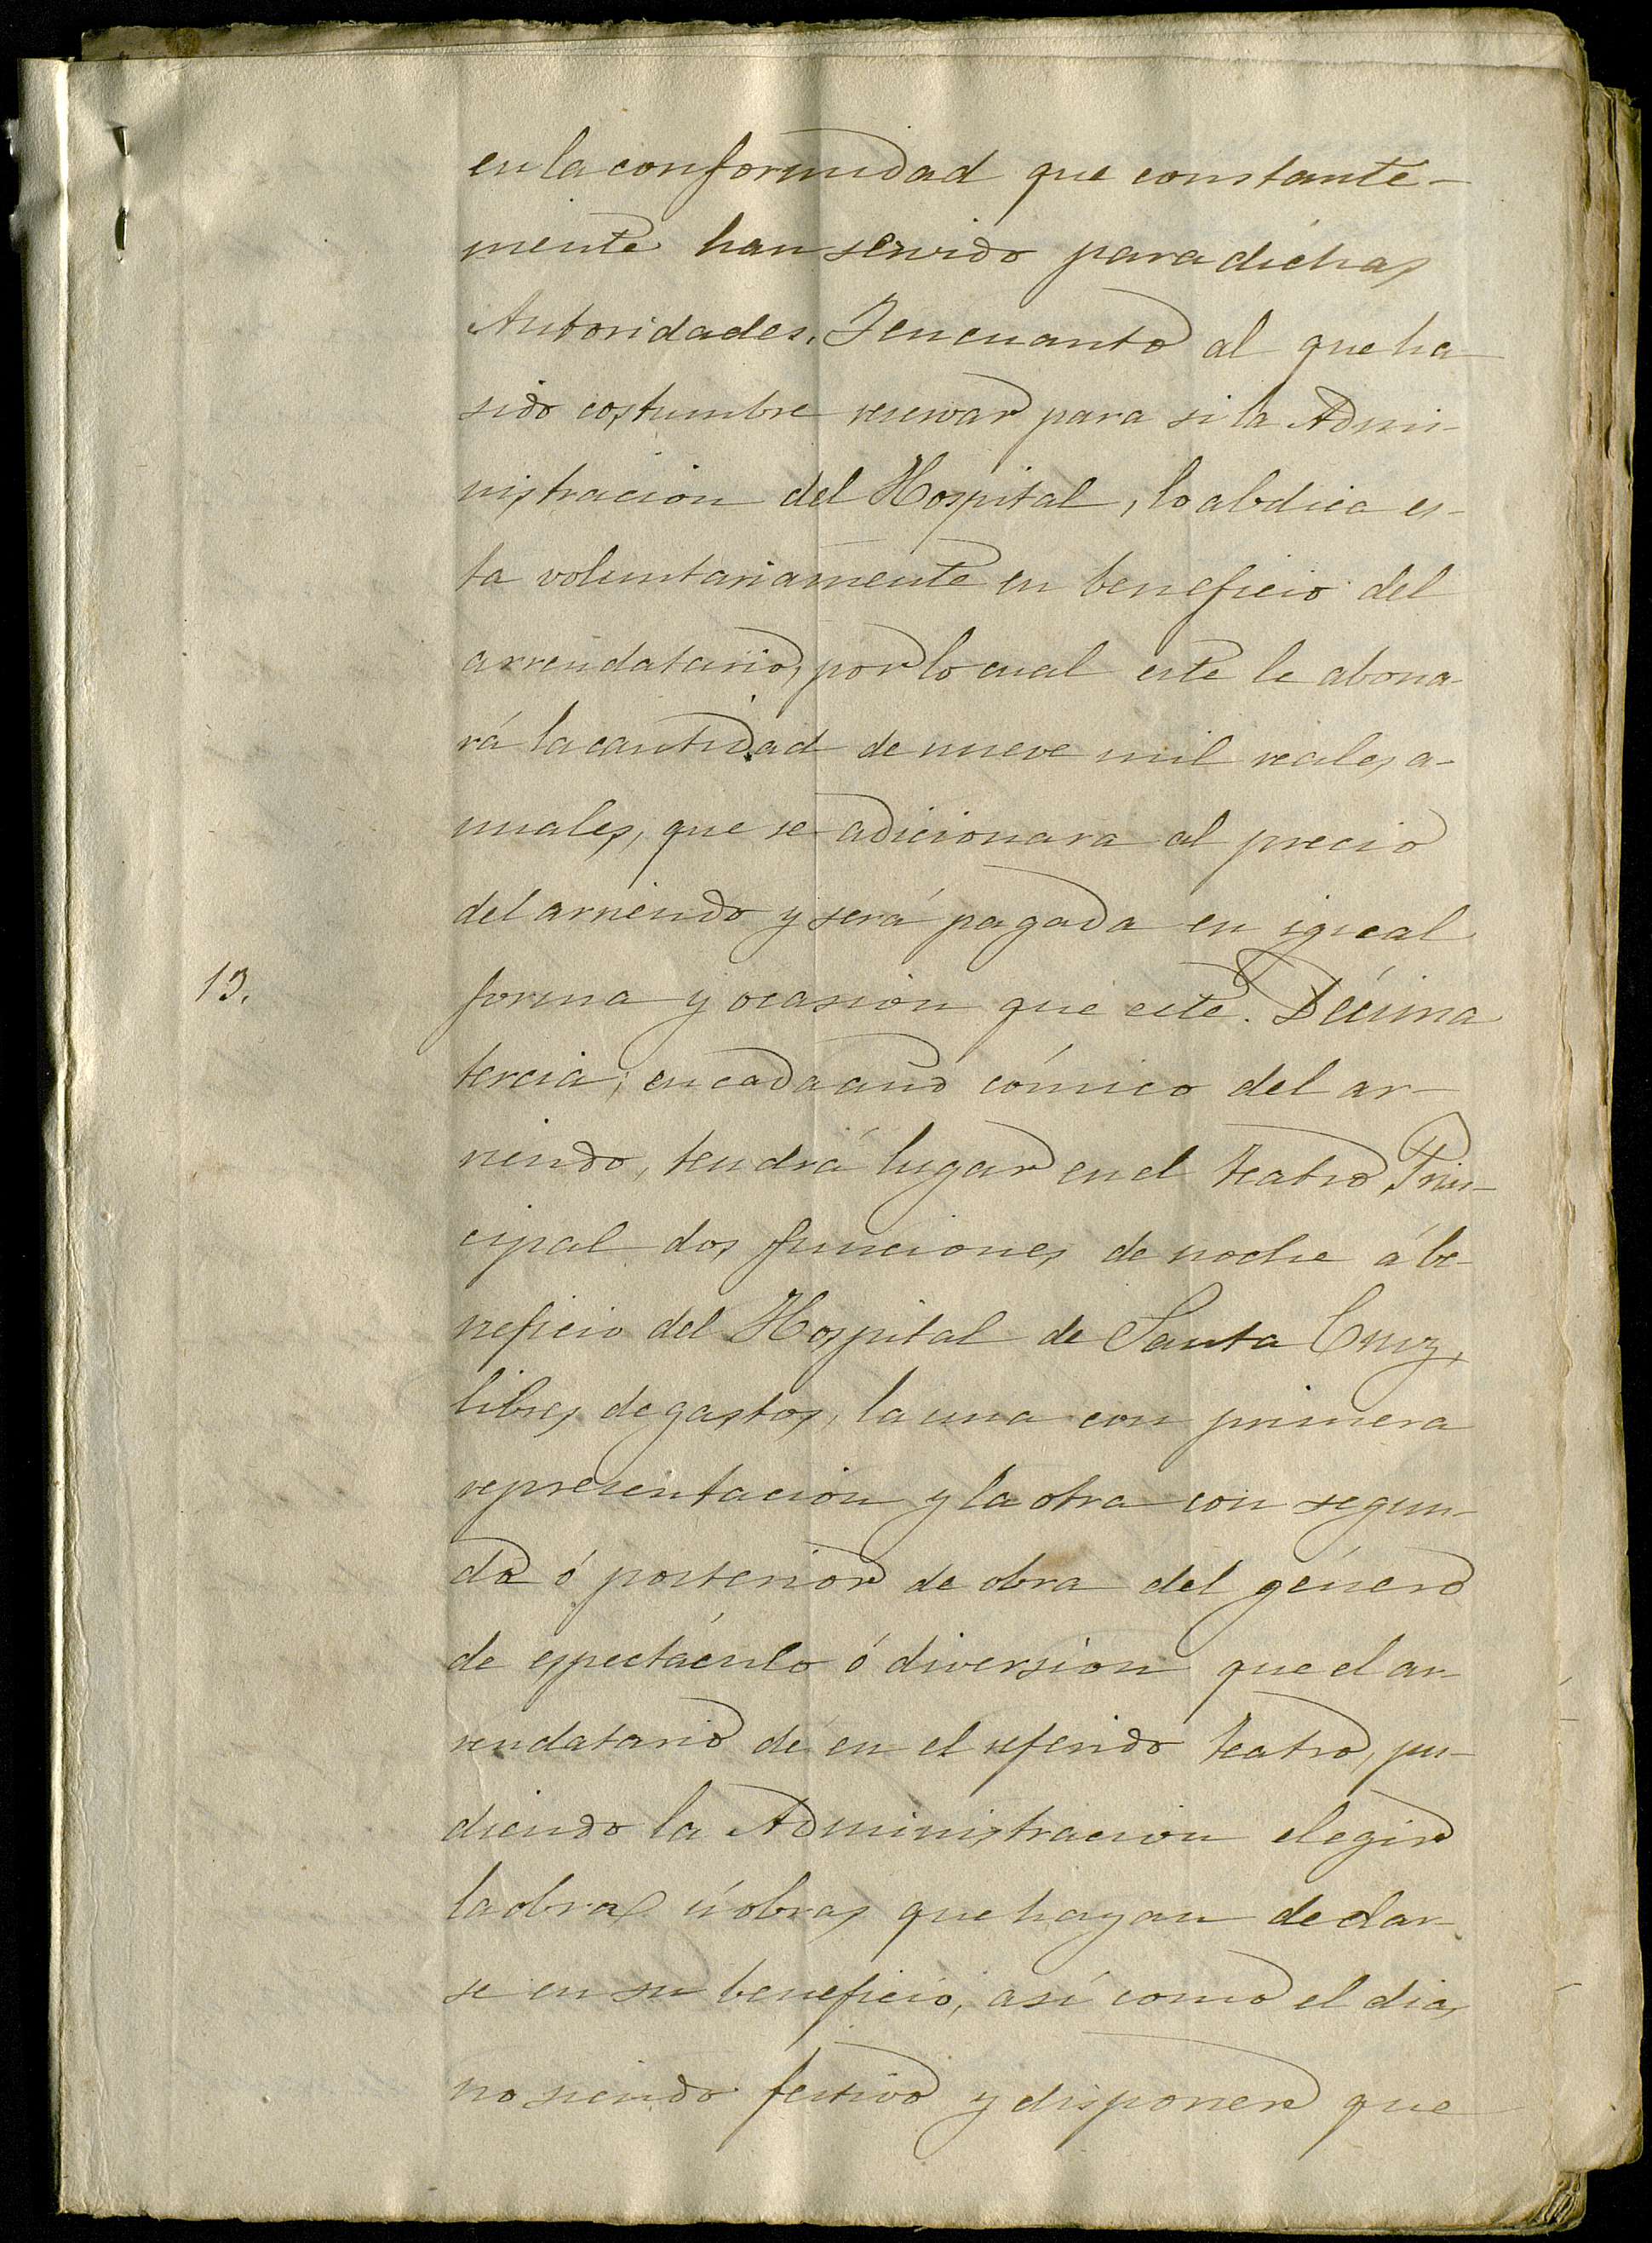 en la conformidad que constante-
mente han servido para dichas
Autoridades. Y en cuanto al que ha
sido costumbre reservar para si la Admi-
nistracion del Hospital, lo abdica es-
ta voluntariamente en beneficio del
arrendatario, por lo cual este le abona-
rá la cantidad de nueve mil reales a-
nuales, que se adicionara al precio
del arriendo y será pagada en igual
13.
forma y ocasion que este. Décima
tercia; en cada año cómico del ar-
riendo, tendrá lugar en el teatro Prin-
cipal dos funciones de noche á be-
neficio del Hospital de Santa Cruz,
libres de gastos, la una con primera
representacion y la otra con segun-
da ó posterior de obra del género
de espectáculo ó diversion que el ar-
rendatario dé en el referido teatro, pu-
diendo la Administracion elegir
la obra ú obras que hayan de dar-
se en su beneficio, así como el dia,
no siendo festivo y disponer que